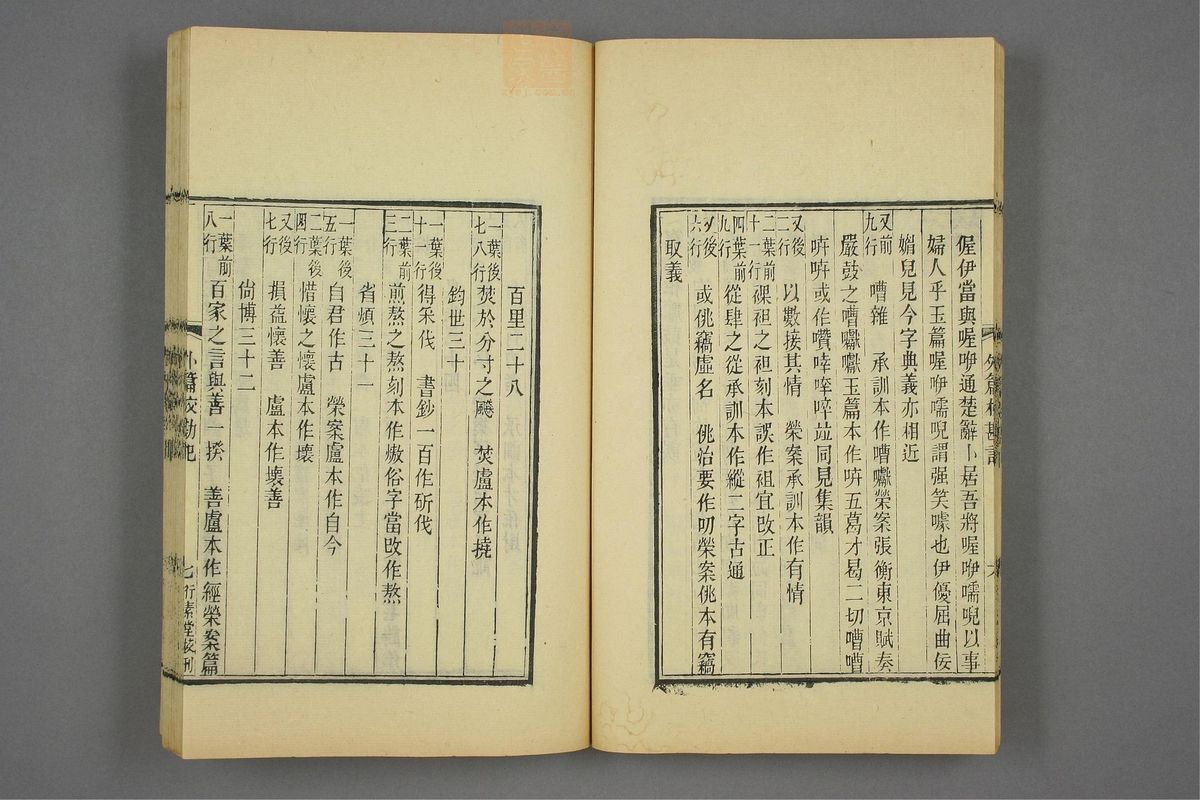 偓伊當與喔咿通楚辭卜居吾將喔咿嚅唲以事
婦人乎玉篇喔咿嚅唲謂强笑噱也伊優屈曲佞
媚皃見今字典義亦相近
又前九行 嘈雜 承訓本作嘈囐榮案張衡東京賦奏
嚴鼓之嘈囐囐玉篇本作㕸五葛才曷二切嘈嘈
㕸㕸或作囋㖕啐啐竝同見集韻
又後二行 以數接其情 榮案承訓本作有情
二葉前十一行 裸袒之袒刻本誤作祖宜改正
四葉前九行 從肆之從承訓本作縱二字古通
又後六行 或佻竊虛名 佻治要作叨榮案佻本有竊
取義
外篇校勘記
六
百里二十八
一葉後七八行 焚於分寸之飇 焚盧本作撓
鈞世三十
一葉後十一行 得采伐 書鈔一百作斫伐
二葉前三行 煎熬之熬刻本作㷅俗字當改作熬
省煩三十一
一葉後五行 自君作古 榮案盧本作自今
二葉後四行 惜懷之懷盧本作壞
又後七行 損益懷善 盧本作壞善
尙博三十二
一葉前八行 百家之言與善一揆 善盧本作經榮案篇
外篇校勘記
七 行素堂校刊